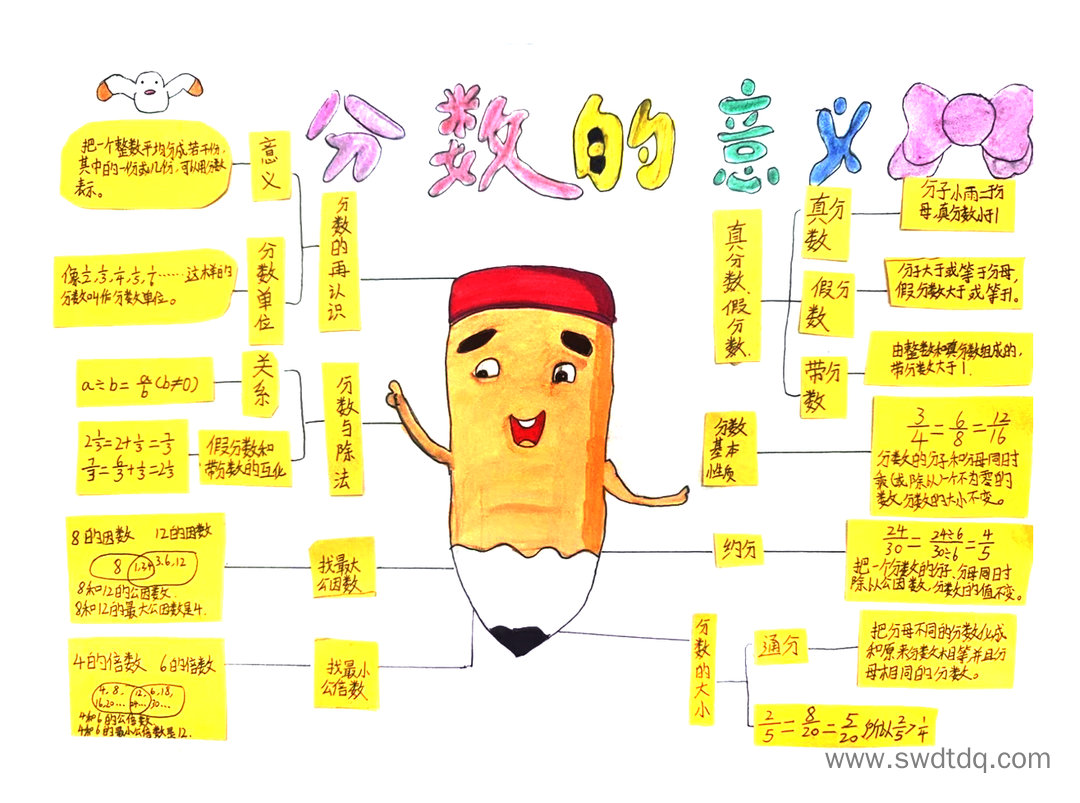 分数的意义
分数的再认识
意义
把一个整数平均分成若干份,
其中的一份或几份,可以用分数
表示。
分数单位
像1/2,1/3,1/4,1/5,1/6……这样的
分数叫作分数单位。
分数与除法
关系
a÷b=a/b(b≠0)
假分数和
带分数的互化
2 1/3=2+1/3=7/3
7/3=6/3+1/3=2 1/3
找最大
公因数
8的因数 12的因数
8 1,2,4 3,6,12
8和12的公因数
8和12的最大公因数是4.
找最小
公倍数
4的倍数 6的倍数
4,8, 12, 6,18,
16,20… 24… 30…
4和6的公倍数
4和6的最小公倍数是12.
真分数、假分数.
真分数
分子小于分
母,真分数小于1
假分数
分子大于或等于分母,
假分数大于或等于1.
带分数
由整数和真分数组成的,
带分数大于1.
分数
基本
性质
3/4=6/8=12/16
分数的分子和分母同时
乘(或除以)一个不为零的
数,分数的大小不变。
约分
24/30=24÷6/30÷6=4/5
把一个分数的分子、分母同时
除以公因数,分数的值不变。
分数的大小
通分
把分母不同的分数化成
和原来分数相等并且分
母相同的分数。
2/5=8/20=5/20,所以2/5>1/4
www.swdtdq.com